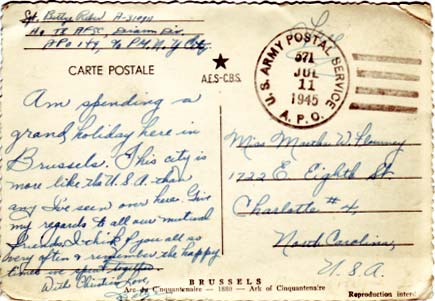 Sgt. Betty
Hq
APO 149, % P.M. N.Y. City
CARTE POSTALE
A.E.S-C.B.S.
U.S. ARMY POSTAL SERVICE
571
JUL
11
1945
A.P.O.
Am spending a
grand holiday here in
Brussels. This city is
more like the U.S.A. than
any I've seen over here. Give
my regards to all our mutual
friends. I think of you all so
very often & remember the happy
times we spent together.
With Christian Love,
Miss Martha W.
1722 E. Eighth St.
Charlotte #4,
North Carolina,
U.S.A.
BRUSSELS
Arc du Cinquantenaire — 1880 — Ark of Cinquantenaire
Reproduction interd